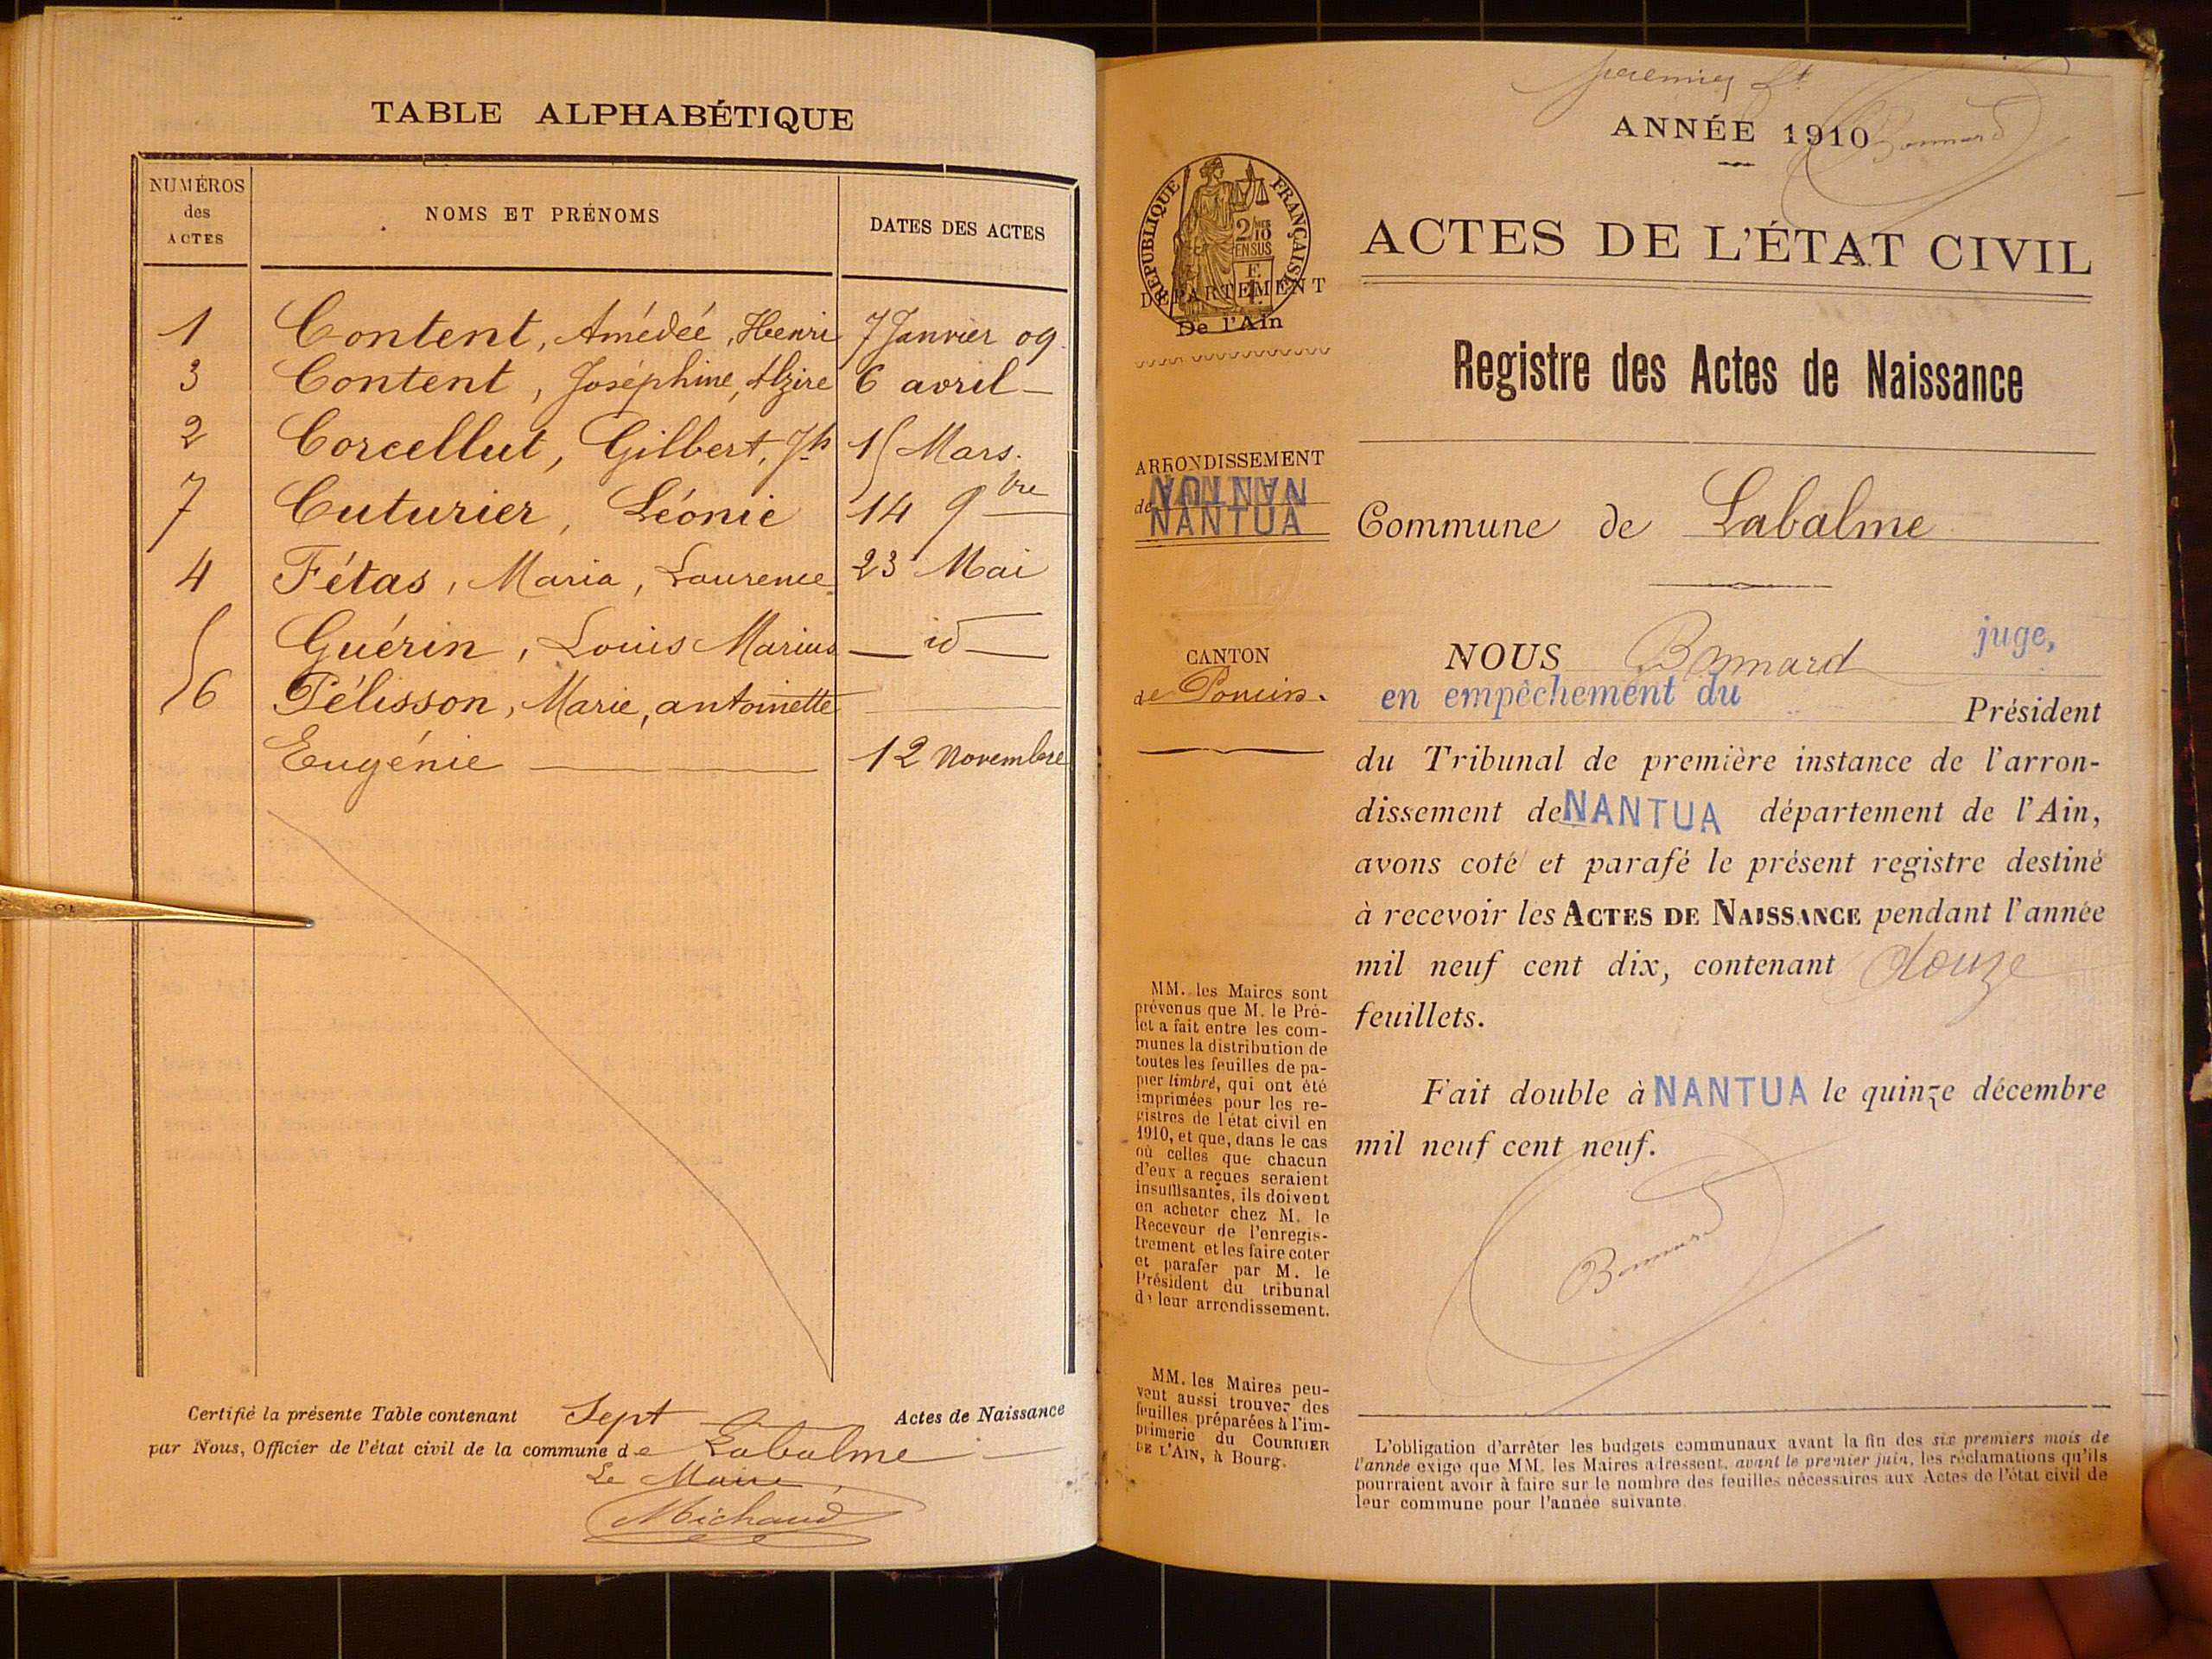 TABLE ALPHABÉTIQUE
NUMÉROS des ACTES NOMS ET PRÉNOMS DATES DES ACTES
1 Content, Amédeé, Henri 7 Janvier 09.
3 Content, Joséphine, Alzire 6 avril —
2 Corcellut, Gilbert, Jh 15 Mars.
7 Cuturier, Léonie 14 9bre
4 Fétas, Maria, Laurence 23 Mai
5 Guérin, Louis Marius — id —
6 Pélisson, Marie, antoinette
Eugénie — 12 novembre
Certifié la présente Table contenant Sept Actes de Naissance
par Nous, Officier de l'état civil de la commune de Labalme
Le Maire,
Michaud
premier ft
Bonnard
ANNÉE 1910
RÉPUBLIQUE FRANÇAISE
2/10 EN SUS
DÉPARTEMENT
De l'Ain
ACTES DE L'ÉTAT CIVIL
Registre des Actes de Naissance
ARRONDISSEMENT
de NANTUA
NANTUA
Commune de Labalme
CANTON
de Poncin.
NOUS Bonnard juge,
en empêchement du Président
du Tribunal de première instance de l'arron-
dissement de NANTUA département de l'Ain,
avons coté et parafé le présent registre destiné
à recevoir les ACTES DE NAISSANCE pendant l'année
mil neuf cent dix, contenant douze
feuillets.
Fait double à NANTUA le quinze décembre
mil neuf cent neuf.
Bonnard
MM. les Maires sont
prévenus que M. le Pré-
fet a fait entre les com-
munes la distribution de
toutes les feuilles de pa-
pier timbré, qui ont été
imprimées pour les re-
gistres de l'état civil en
1910, et que, dans le cas
où celles que chacun
d'eux a reçues seraient
insuffisantes, ils doivent
en acheter chez M. le
Receveur de l'enregis-
trement et les faire coter
et parafer par M. le
Président du tribunal
de leur arrondissement.
MM. les Maires peu-
vent aussi trouver des
feuilles préparées à l'im-
primerie du COURRIER
DE L'AIN, à Bourg.
L'obligation d'arrêter les budgets communaux avant la fin des six premiers mois de
l'année exige que MM. les Maires adressent, avant le premier juin, les réclamations qu'ils
pourraient avoir à faire sur le nombre des feuilles nécessaires aux Actes de l'état civil de
leur commune pour l'année suivante.